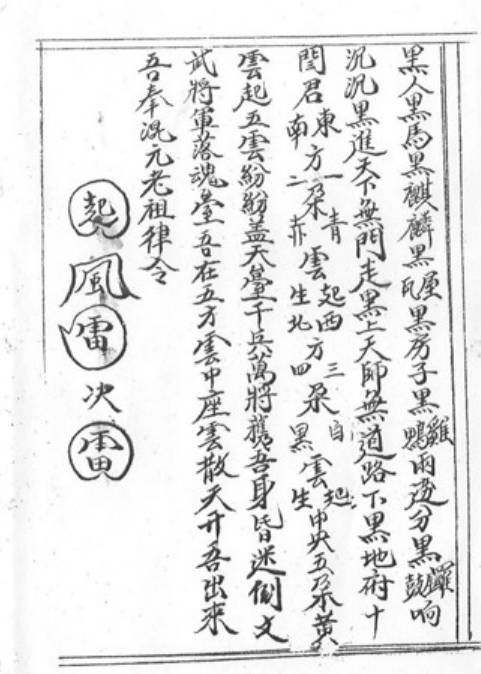 黑人黑馬黑麒麟黑屋瓦黑房子黑雞鴨兩邊分黑鑼鼓响
沉沉黑進天下無門走黑上天師無道路下黑地府十
閻君東方一朵青雲起南二赤生西方三朵白雲起北四黑生中央五朵黄
雲起五雲紛紛蓋天臺千兵萬將攜吾身皆迷倒文
武將軍落魂臺吾在五方雲中座雲散天开吾出來
吾奉混元老祖律令
起風雷次雷